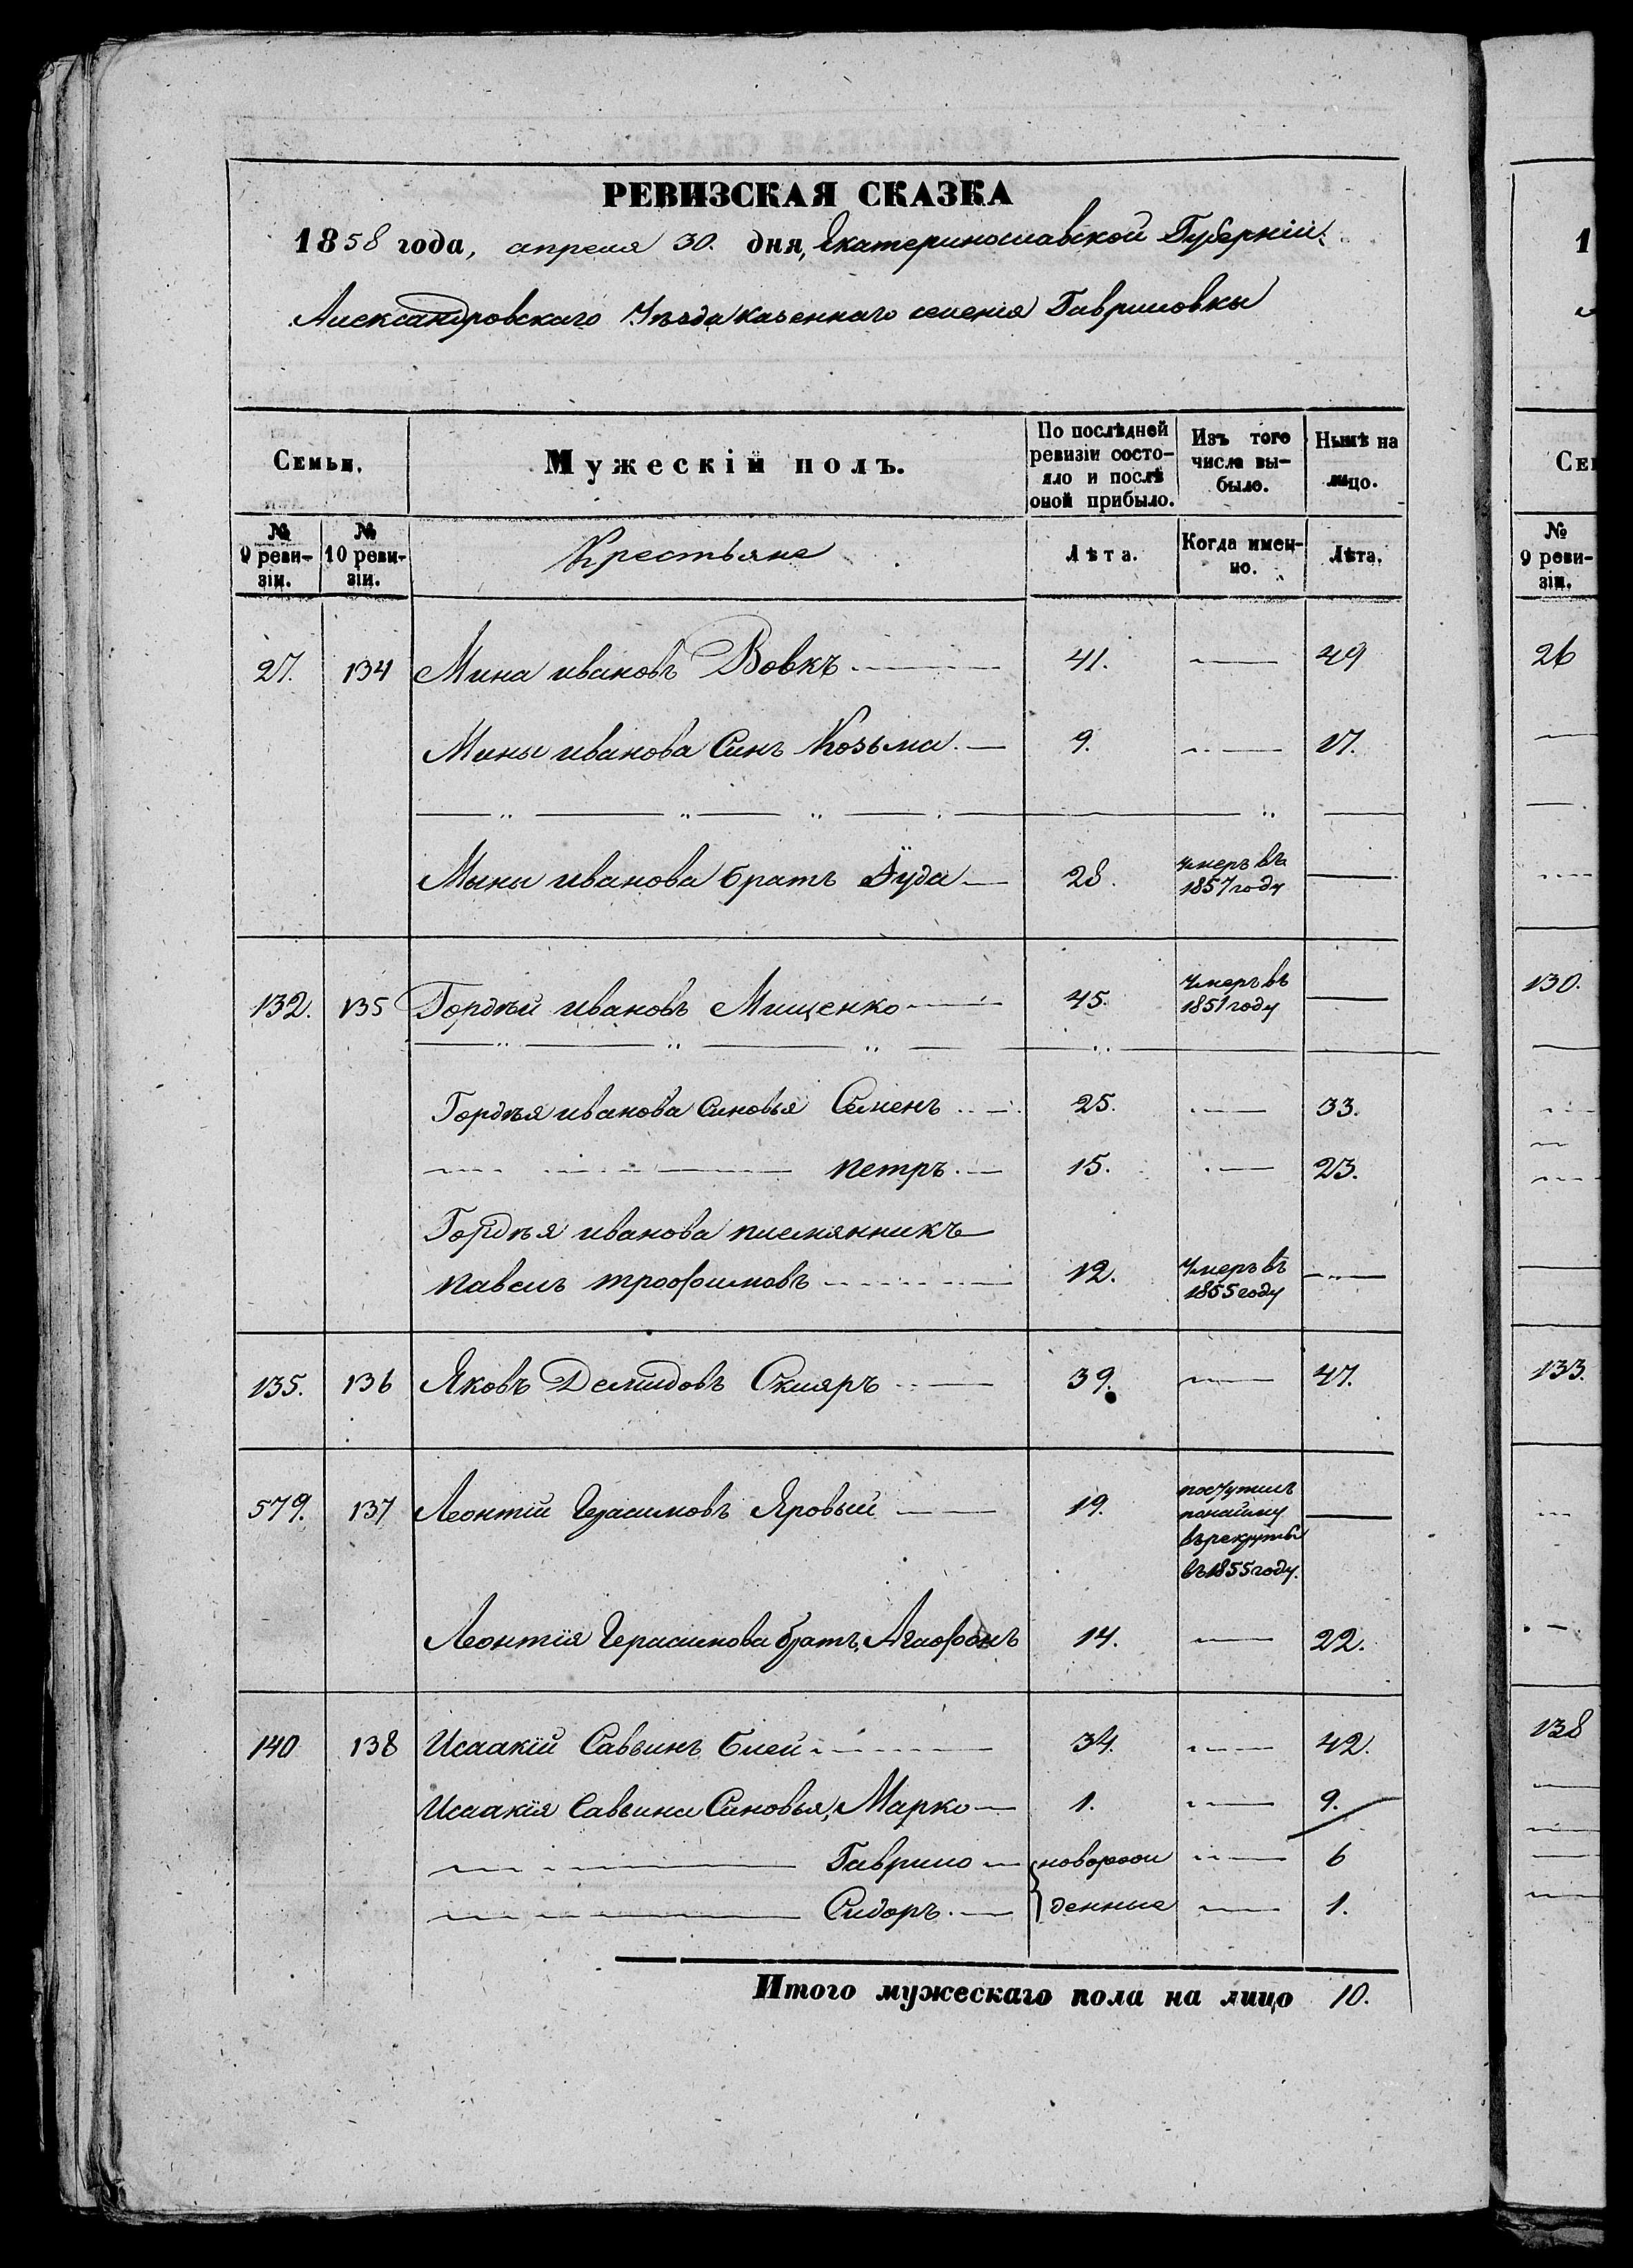 РЕВИЗСКАЯ СКАЗКА
1858 года, апреля 30. дня, Екатеринославской Губерніи.
Александровскаго Уѣзда казеннаго селенія Гавриловки
Семьи. Мужескій полъ. По послѣдней ревизіи состояло и послѣ оной прибыло. Изъ того числа выбыло. Нынѣ на лицо.
№ 9 ревизіи. № 10 ревизіи. Крестьяне Лѣта. Когда именно. Лѣта.
27. 134 Мина Ивановъ Вовкъ 41. 49
Мины Иванова Синъ Козьма 9. 17.
Мины Иванова братъ Іуда 28. Умеръ въ 1857 году
132. 135 Гордѣй Ивановъ Мищенко 45. Умеръ въ 1851 году
Гордѣя Иванова Синовья Семенъ 25. 33.
Петръ 15. 23.
Гордѣя Иванова племянникъ
Павелъ Трофимовъ 12. Умеръ въ 1855 году
135. 136 Яковъ Демидовъ Скляръ 39. 47.
579. 137 Леонтій Герасимовъ Яровый 19. поступилъ
по найму
въ рекруты
въ 1855 году.
Леонтія Герасимова братъ, Агафонъ 14. 22.
140 138 Исаакій Саввинъ Блей 34. 42.
Исаакія Саввина Синовья, Марко 1. 9.
Гаврило новорож 6
Сидоръ денные 1.
Итого мужескаго пола на лицо 10.
1
Се
№
9 реви-
зіи.
26
130.
133.
138